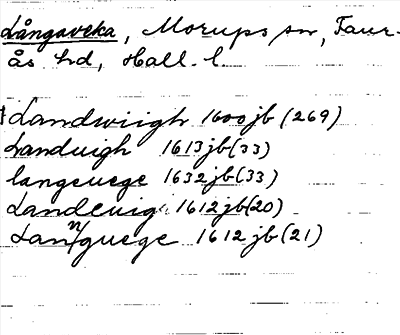 Långaveka, Morups sn, Faur-
ås hd, Hall. l.
Landwiigh 1600 jb (269)
Landuigh 1613 jb (33)
langeuege 1632 jb (33)
Landeuig 1612 jb (20)
Lan/guege 1612 jb (21)